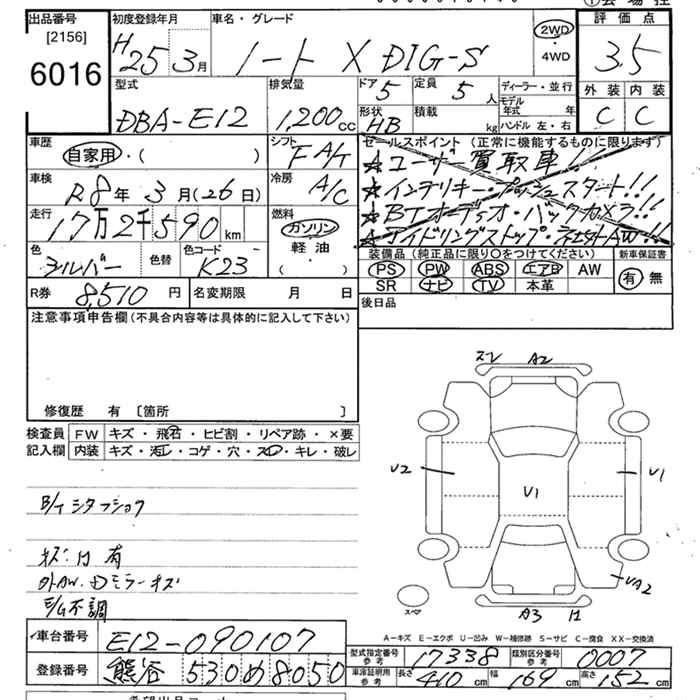 出品番号
[2156]
6016
初度登録年月
H25年3月
車名・グレード
ノート X DIG-S
2WD
・
4WD
評価点
3.5
外装 内装
C C
型式
DBA-E12
排気量
1,200cc
ドア 5
定員 5人
形状 HB
積載 kg
ディーラー・並行
モデル年式 年
ハンドル 左・右
車歴
自家用・( )
シフト
FA/T
セールスポイント (正常に機能するものに限ります)
☆ユーザー買取車!!
☆インテリキー・プッシュスタート!!
☆BTオーディオ・バックカメラ!!
☆アイドリングストップ・社外AW!!
車検
R8年3月(26日)
冷房
A/C
走行
17万2千590km
燃料
ガソリン
軽油
・( )
色
シルバー
色替
色コード
K23
装備品(純正品に限り○をつけてください)
PS PW ABS エアB AW
SR ナビ TV 本革
新車保証書
有 無
R券 8,510円
名変期限 月 日
後日品
注意事項申告欄(不具合内容等は具体的に記入して下さい)
修復歴 有 [箇所 ]
検査員記入欄
FW キズ・飛石・ヒビ割・リペア跡・×要
内装 キズ・汚レ・コゲ・穴・スレ・キレ・破レ
B/Tシタフショク
キズ・凹有
外AW.Dミラーキズ
E/G不調
スレ A2
U2
U1
U1
UA2
スペア
A3 凹
A-キズ E-エクボ U-凹み W-補修跡 S-サビ C-腐食 XX-交換済
車台番号
E12-090107
登録番号
熊谷530め8050
型式指定番号
参考
17338
類別区分番号
参考
0007
車庫証明用
参考
長さ 410cm
幅 169cm
高さ 152cm